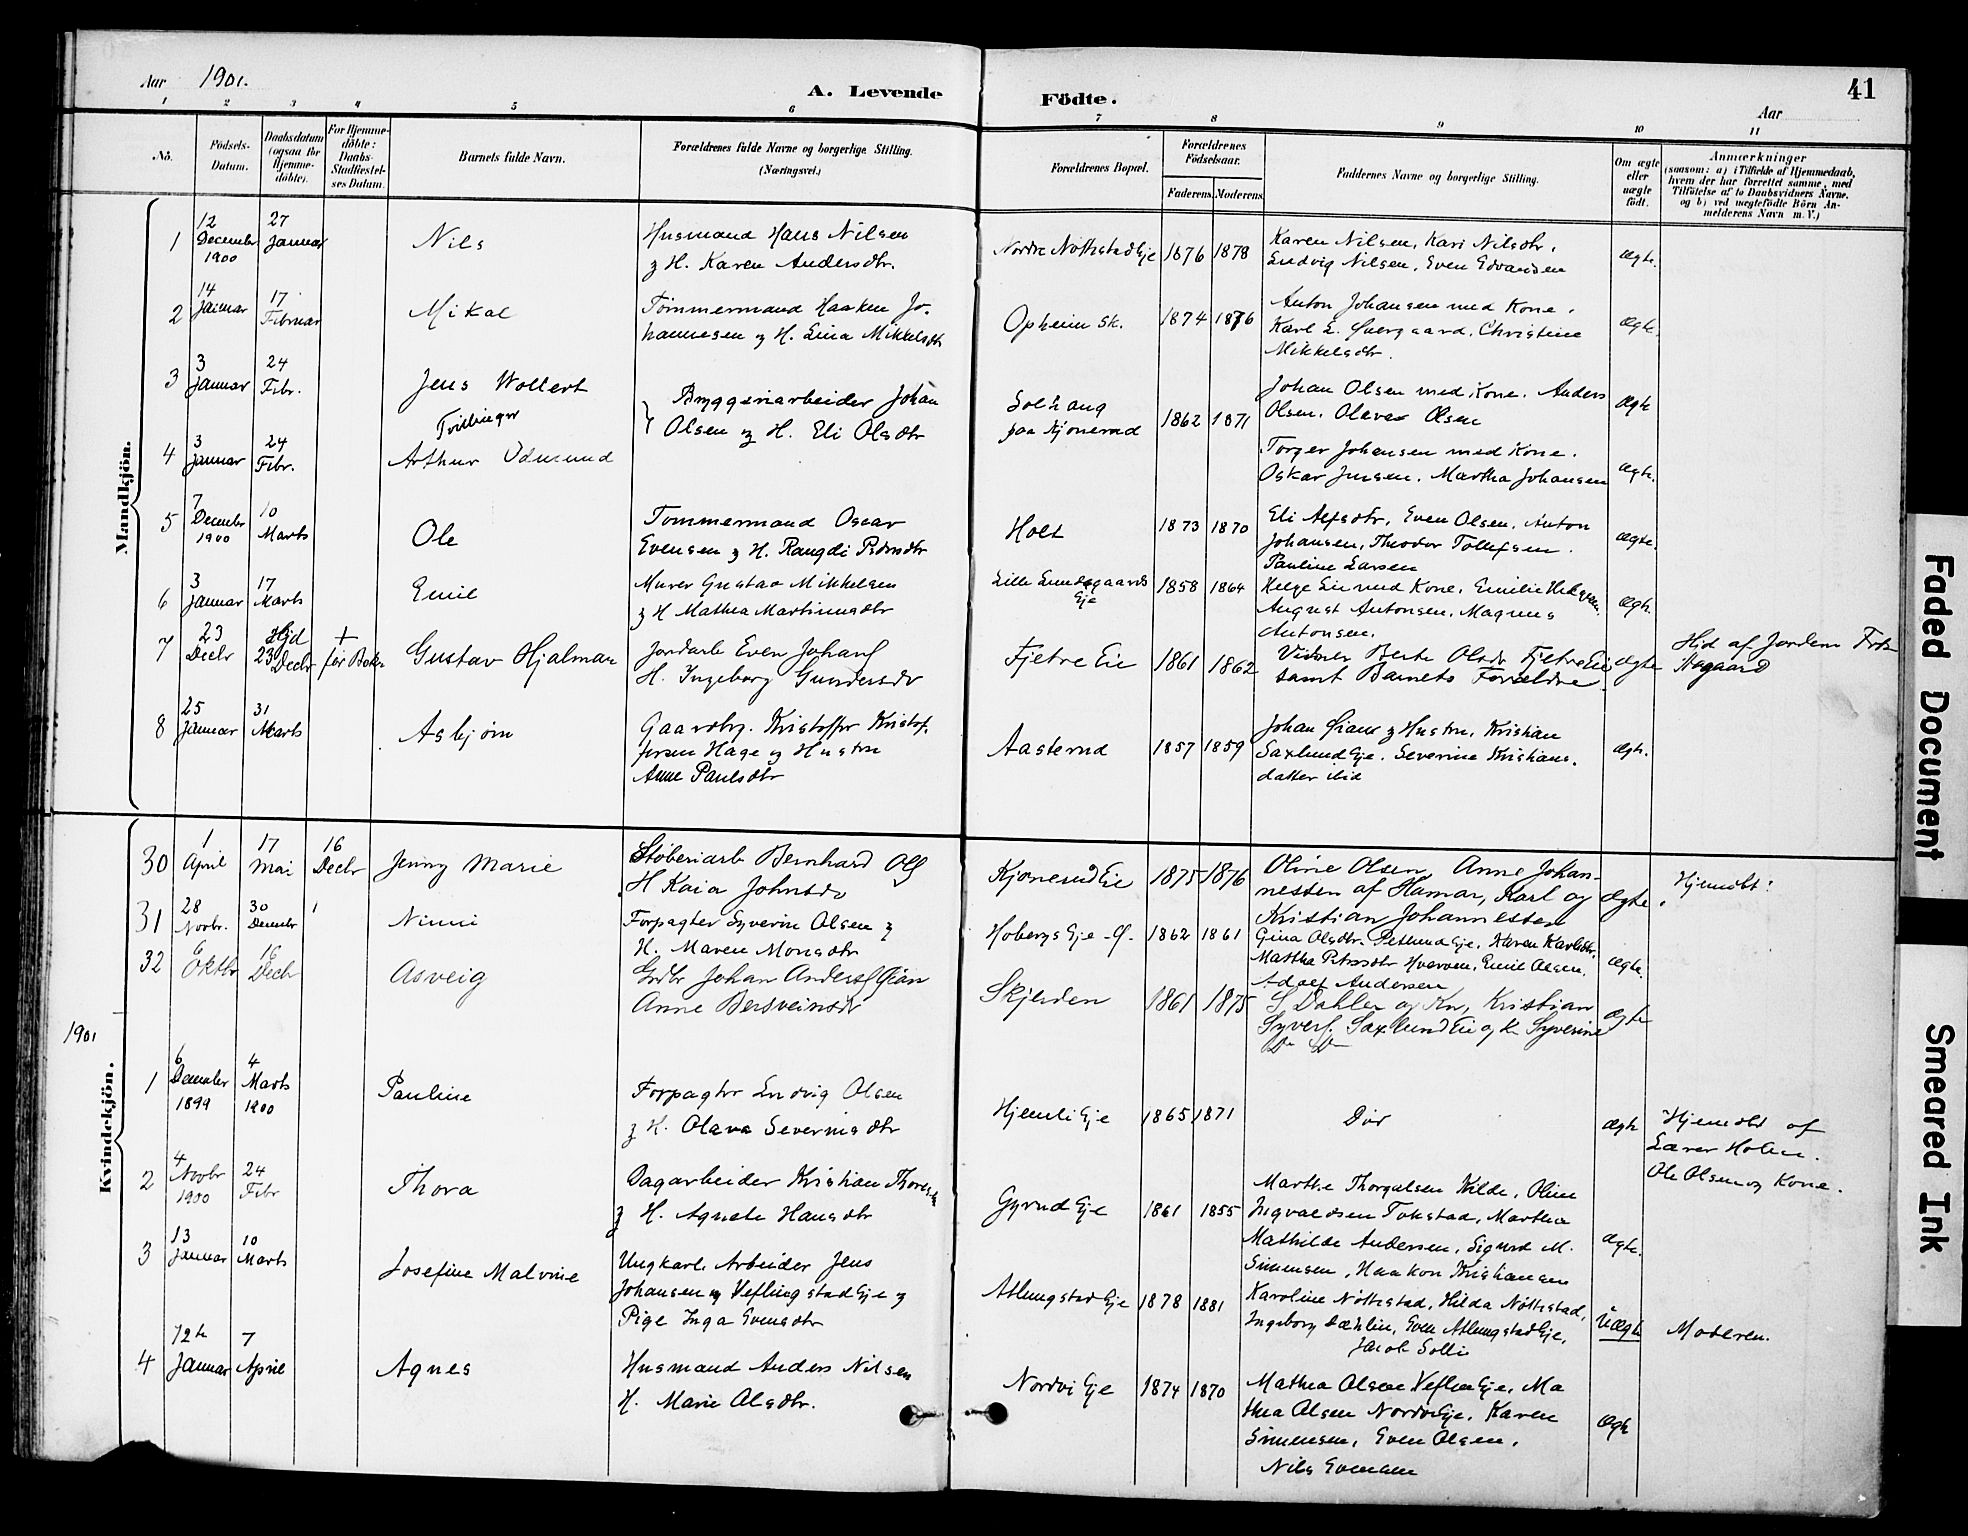 Aar 1901.
A. Levende
Födte.
Aar
41
1 2 3 4 5 6 7 8 9 10 11
No.
Födsels-
Datum.
Daabsdatum
(ogsaa for
Hjemme-
döbte).
For Hjemme-
döbte:
Daabs-
Stadfæstel-
ses Datum.
Barnets fulde Navn.
Forældrenes fulde Navne og borgerlige Stilling.
(Næringsvei.)
Forældrenes Bopæl.
Forældrenes
Födselsaar.
Faderens. Moderens.
Faddernes Navne og borgerlige Stilling.
Om ægte
eller
uægte
födt.
Anmærkninger
(saasom: a) i Tilfælde af Hjemmedaab,
hvem der har forrettet samme, med
Tilföielse af to Daabsvidners Navne.
og b) ved uægtefödte Börn An-
melderens Navn m. V.)
Mandkjön.
1
12
December
1900
27
Januar
Nils
Husmand Hans Nilsen
og H. Karen Andersdtr.
Nordre Nøttestad Eje
1876 1878
Karen Nilsen, Kari Nilsdtr.
Ludvig Nilsen, Even Edvardsen
Ægte.
2
14
Januar
17
Februar
Mikal
Tømmermand Haaken Jo-
hannesen og H. Lina Mikkelsdtr
Opheim sk.
1874 1876
Anton Johansen med Kone,
Karl E. Øvergaard, Christine
Mikkelsdtr.
Ægte.
3
3
Januar
24
Febr.
Jens Wollert
Tvillinger
Bryggeriarbeider Johan
Olsen og H. Eli Olsdtr
Solhaug
paa Kjonerud
1862 1871
Johan Olsen med Kone. Anders
Olsen, Olava Olsen
Ægte
4
3
Januar
24
Febr.
Arthur Odmund
Torger Johansen med Kone.
Oskar Jensen. Martha Johansen
Ægte.
5
7
Decembr
1900
10
Marts
Ole
Tømmermand Oscar
Evensen og H. Rangdi Pedersdtr
Holt
1873 1870
Eli Alfsdtr, Even Olsen, Anton
Johansen, Theodor Tollefsen.
Pauline Larsen
Ægte.
6
3
Januar
17
Marts
Emil
Murer Gustav Mikkelsen
og H Mathea Martinusdtr
Lille Lundsgaards
Eje
1858 1864
Helge Lie med Kone, Emilie Helgesen,
August Antonsen, Magnus
Antonsen.
Ægte.
7
23
Decbr
Hjd
23 Decbr
+
før Bekr
Gustav Hjalmar
Jordarb Even Johans
H. Ingeborg Gundersdr
Fjetre Eie
1861 1862
Vidner Berte Olsdr Fjetre Eie
samt Barnets Forældre.
Ægte
Hjd af Jordem Frk
Aagaard
8
25
Januar
31
Marts
Asbjørn
Gaardbrg. Kristoffer Kristof-
fersen Hage og Hustru
Anne Paulsdtr
Aasterud
1857 1859
Johan Gian og Hustru, Kristian
Saxlund Eje. Severine Kristians-
datter ibid
Ægte.
Kvindekjön.
30
1
April
17
Mai
16
Decbr
Jenny Marie
Støberiarb Bernhard Ols
H Kaia Johnsdr
Kjonerud Eie
1875 1876
Oline Olsen, Anne Johan-
nessen af Hamar, Karl og
Kristian Johannessen
Ægte
Hjemdbt.
31
28
Novbr.
30
Decembr
Nimi
Forpagter Syverin Olsen og
H. Maren Monsdtr
Hobergs Eje
1862 1861
Gina Olsdtr. Petlund Eje. Karen Karlsdtr.
Martha Petersdtr Hverven, Emil Olsen,
Adolf Andersen
Ægte.
32
6
Oktbr
16
Decbr
Asveig
Grdbr Johan Anders Gian
Anne Bersveinsdr
Skjerden
1861 1875
S Dahlen og Kn, Kristian
Syvers. Saxlund Eie og K Syverine
Do Do
Ægte
1901
1
6
December
1899
4
Marts
1900
Pauline
Forpagter Ludvig Olsen
og H. Olava Severinsdtr
Hjemli Eje
1865 1871
Dør
Ægte
Hjemdbt af
Lærer Holen.
Ole Olsen og Kone.
2
4
Novbr
1900
24
Febr
Thora
Dagarbeider Kristian Thoresen
og H. Agnete Hansdtr
Gyrud Eje
1861 1855
Marthe Thorgalsen Kilde, Oline
Ingvaldsen Tokstad, Marthea
Mathilde Andersen, Sigurd M.
Simensen, Haakon Kristiansen
Ægte.
3
13
Januar
10
Marts
Josefine Malvine
Ungkarl. Arbeider Jens
Johansen Veflingstad Eje og
Pige Inga Evensdtr
Atlungstad Eje
1878 1881
Karoline Nøttestad, Hilda Nøttestad,
Ingeborg Dæhlin, Even Atlungstad Eje,
Jacob Solli
Uægte
Moderen.
4
12te
Januar
7
April
Agnes
Husmand Anders Nilsen
H. Marie Olsdtr.
Nordvi Eje
1874 1870
Mathea Olsen Veflen Eje, Ma
thea Olsen Nordvi Eje, Karen
Simensen, Even Olsen,
Nils Evensen
Ægte
Faded Document
Smeared Ink